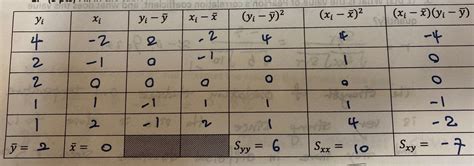 yᵢ xᵢ yᵢ − ȳ xᵢ − x̄ (yᵢ − ȳ)² (xᵢ − x̄)² (xᵢ − x̄)(yᵢ − ȳ)
4 -2 2 -2 4 4 -4
2 -1 0 -1 0 1 0
2 0 0 0 0 0 0
1 1 -1 1 1 1 -1
1 2 -1 2 1 4 -2
ȳ = 2 x̄ = 0 Syy = 6 Sxx = 10 Sxy = -7